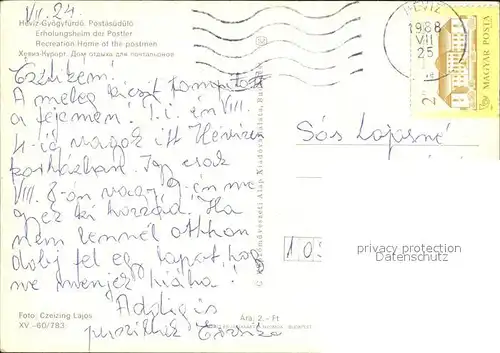 VII. 24.
Hévíz-Gyógyfürdő. Postásüdülő
Erholungsheim der Postler
Recreation Home of the postmen
Хевиз-Курорт. Дом отдыха для почтальонов
HÉVÍZ
1988
VII
25
MAGYAR POSTA
2
A meleg kicsit
a fejemen! I. i. én VIII.
4-ig vagyok itt Hévízen
kórházban. Így csak
VIII. 8-án vagy 9-én me
gyek ki hozzád. Ha
nem lennél otthon
dobj fel egy lapot, hogy
ne menjek hiába!
Addig is
puszillak Erzsike
Sós Lajosné
10
privacy protection
Datenschutz
Foto: Czeizing Lajos
XV.-60/783.
Ára: 2,- Ft
Képzőművészeti Alap Kiadóvállalata, Budapest